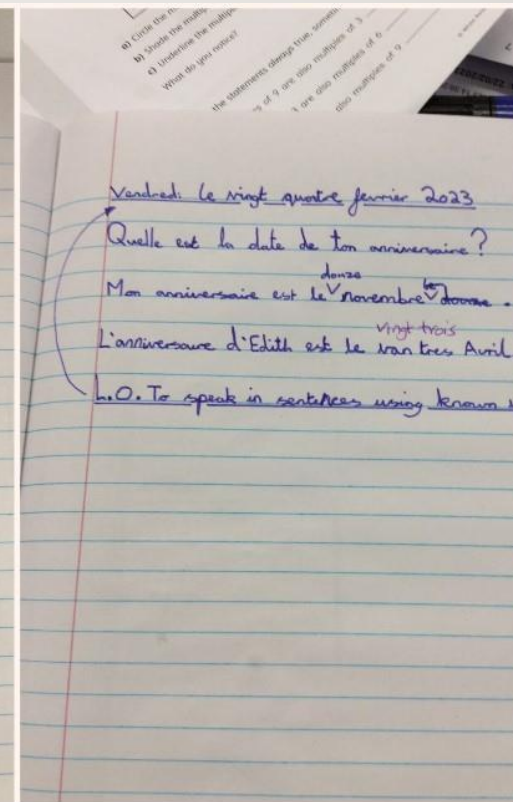 a) Circle the
b) Shade the
c) Underline the multiple
What do you notice?
the statements always true,
of 9 are also multiples of 3
are also multiples of 6
also multiples of 9
Vendredi le vingt quatre fevrier 2023
Quelle est la date de ton anniversaire?
douze le
Mon anniversaire est le novembre douze.
vingt trois
L'anniversaire d'Edith est le van tres Avril
L.O. To speak in sentences using known